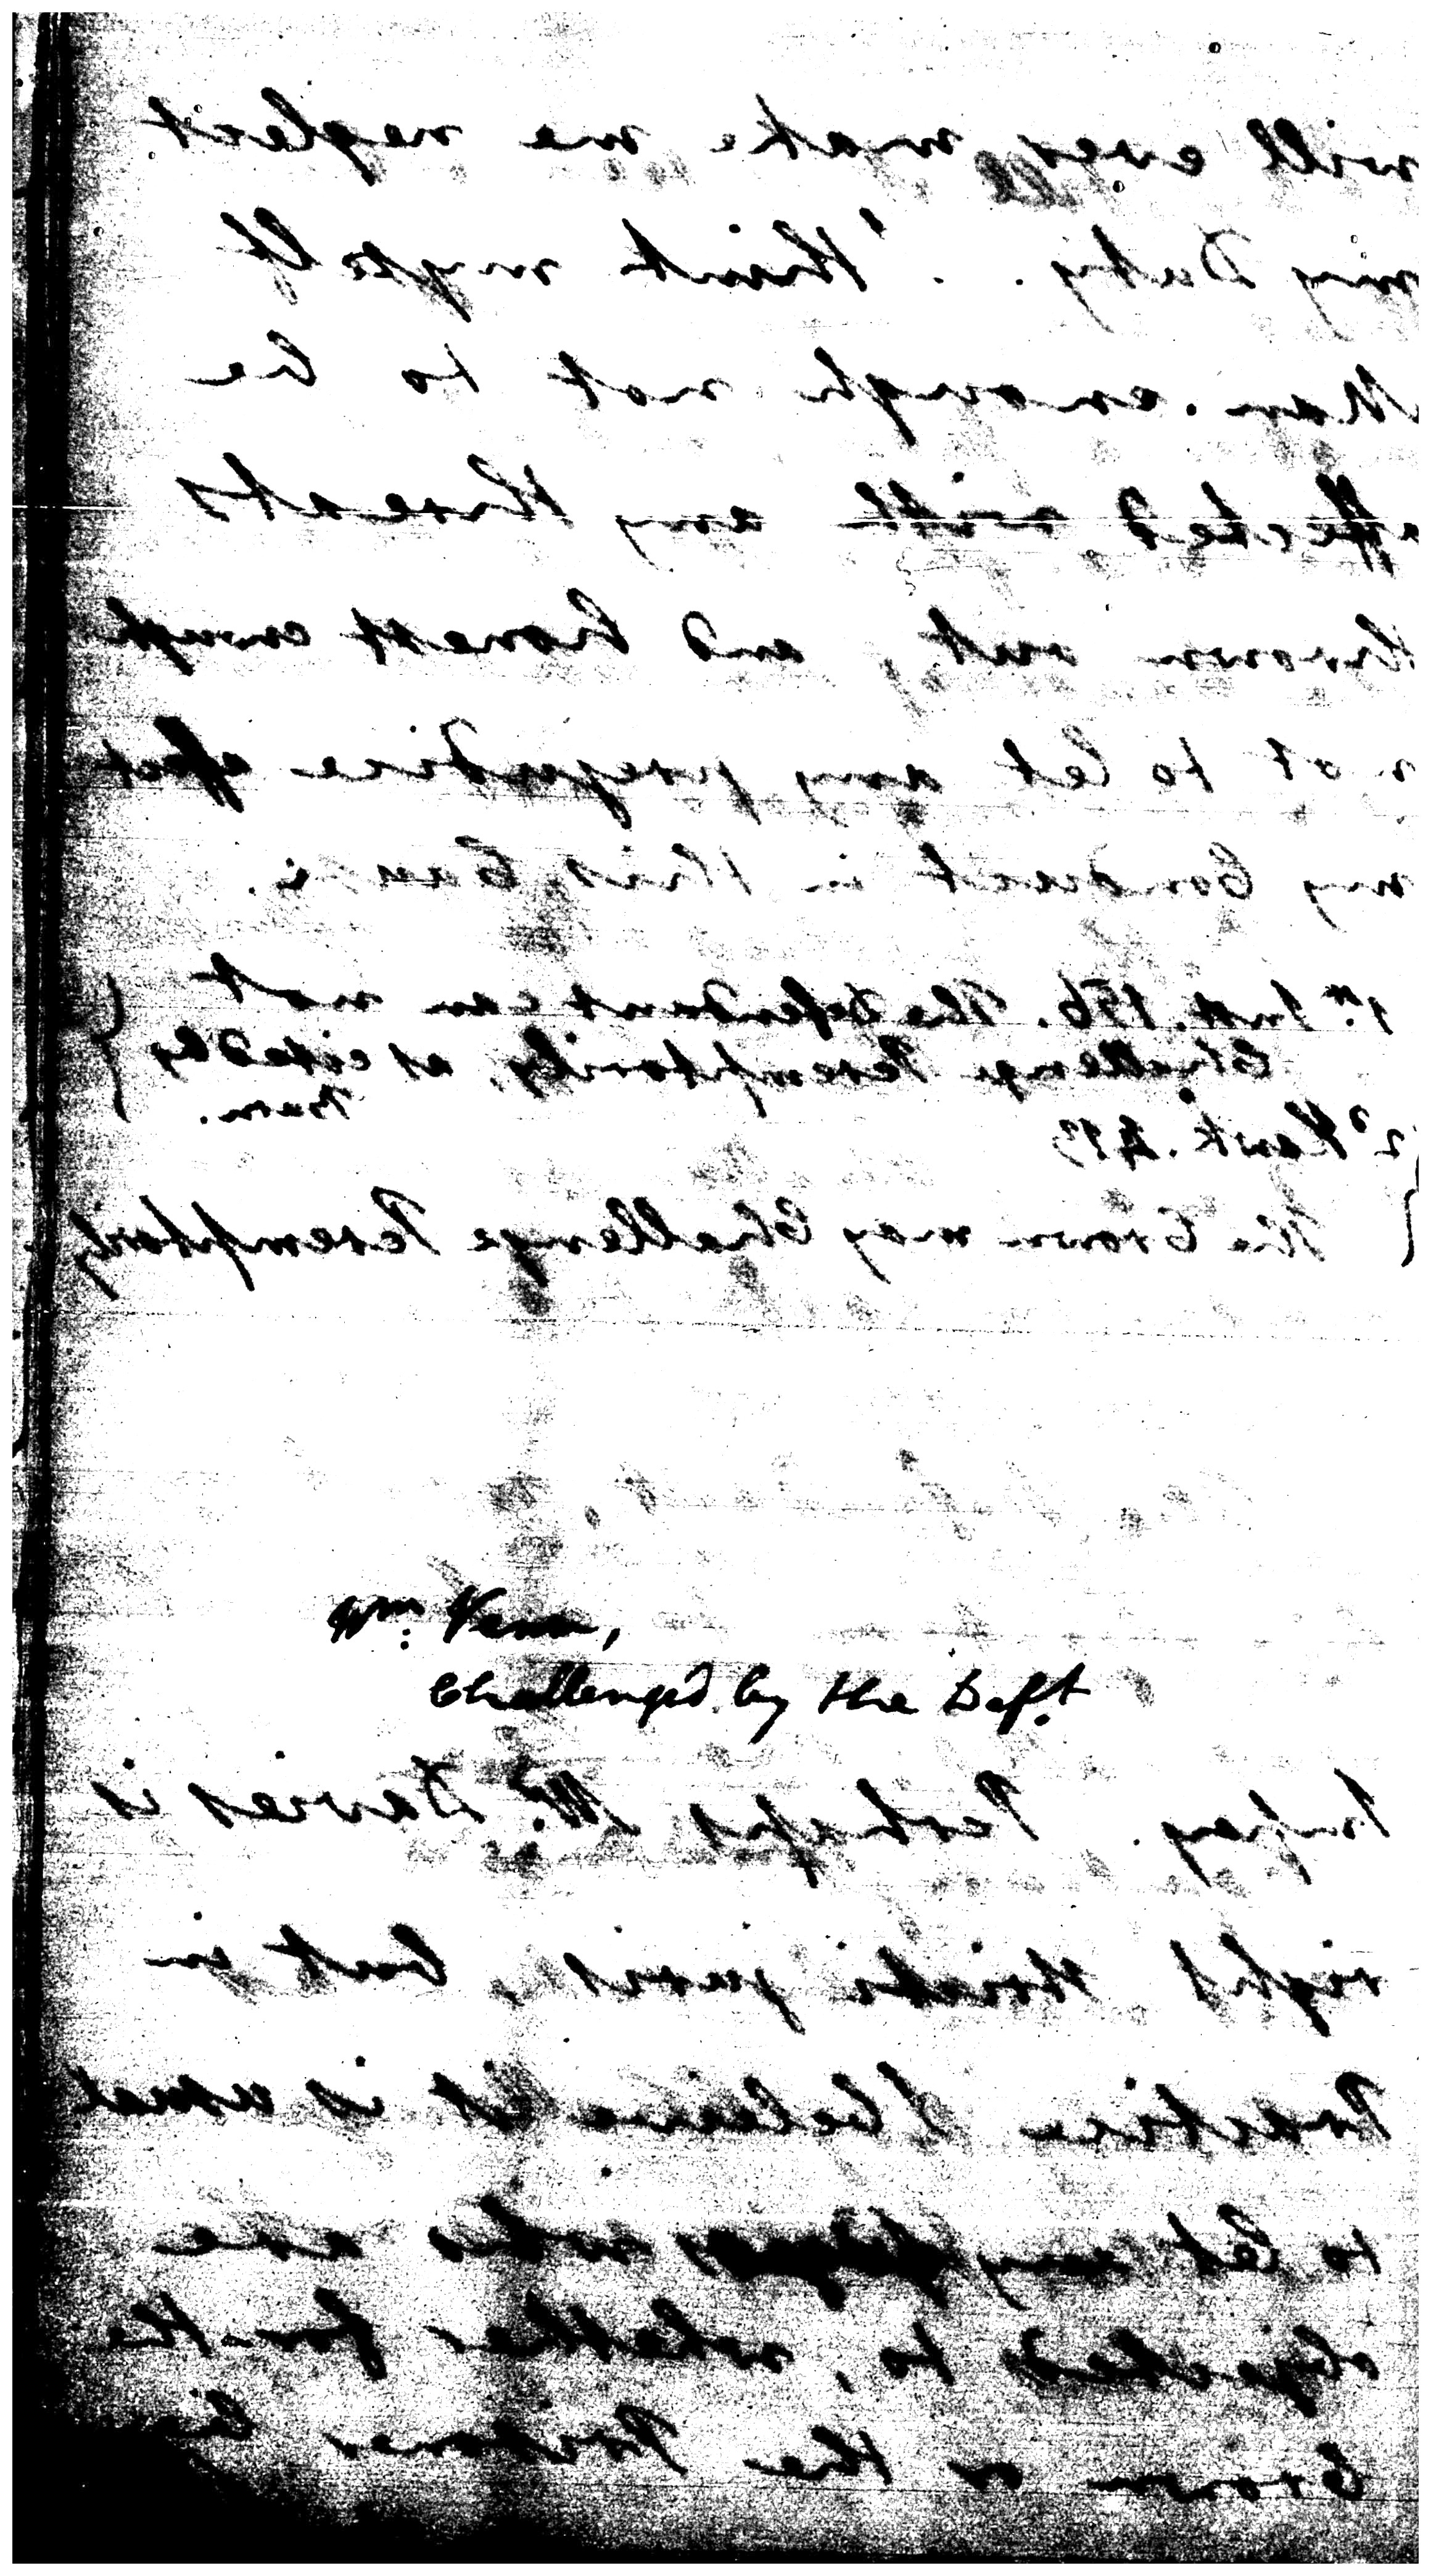 will ever make me neglect
my Duty. I think myself
Man enough not to be
affected with any threats
thrown out, and honest enough
not to let any prejudice affect
my Conduct in this Cause.
1st. Inst. 156. The Defendant can not
Challenge Peremptorily, as cited by
2d Hawk. 413
The Crown may Challenge Peremptorily
Wm. Venn,
Challenged by the Deft.
Impey. Perhaps Mr. Davies is
right Strictu juris, but in
Practice I beleive it is usual
to let any who are
objected to, whether for the
Crown or the Prisoner